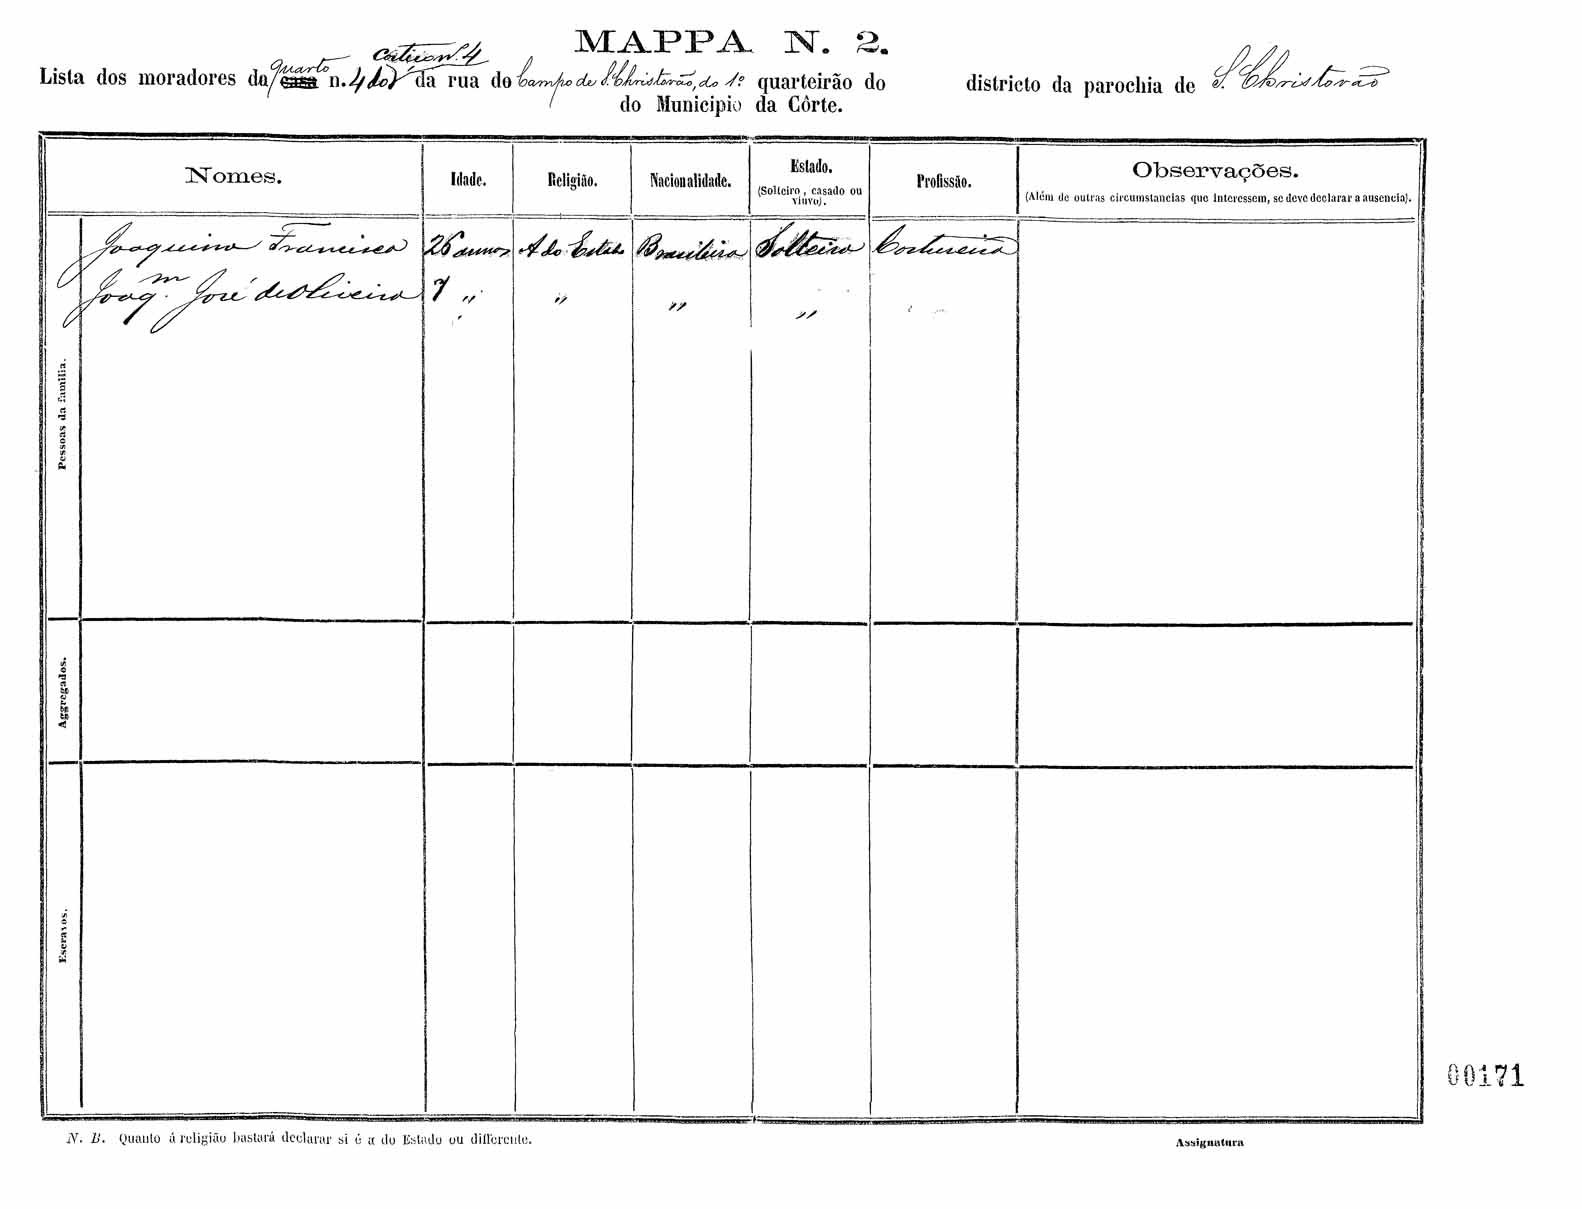 MAPPA N. 2.
Lista dos moradores da quarto casa n. 4 do Cortiço n. 4 da rua do Campo de S. Christovão, do 1º quarteirão do districto da parochia de S. Christovão
do Municipio da Côrte.
Nomes. Idade. Religião. Nacionalidade. Estado. (Solteiro, casado ou viuvo). Profissão. Observações. (Além de outras circumstancias que interessem, se deve declarar a ausencia).
Joaquina Francisca 26 annos A do Estado Brasileira Solteira Costureira
Joaqm. José de Oliveira 7 " " " "
Pessoas da familia.
Aggregados.
Escravos.
00171
N. B. Quanto á religião bastará declarar si é a do Estado ou differente.
Assignatura